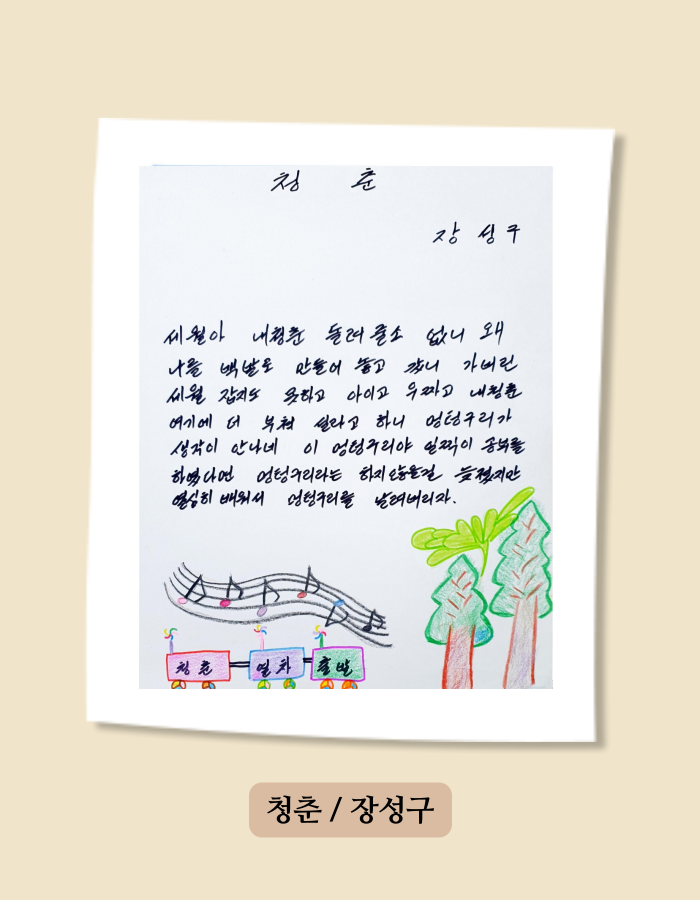 청 춘
장 성구
세월아 내청춘 돌려 줄소 없니 왜
나를 백발로 만들어 놓고 갔니 가버린
세월 잡지도 못하고 아이고 우짜고 내청춘
여기에 더 부쳐 설라고 하니 엉텅구리가
생각이 안나네 이 엉텅구리야 일찍이 공부를
하였다면 엉텅구리라는 하지않을걸 늦젔지만
열심히 배워서 엉텅구리를 날려버리자.
청춘 열차 출발
청춘 / 장성구